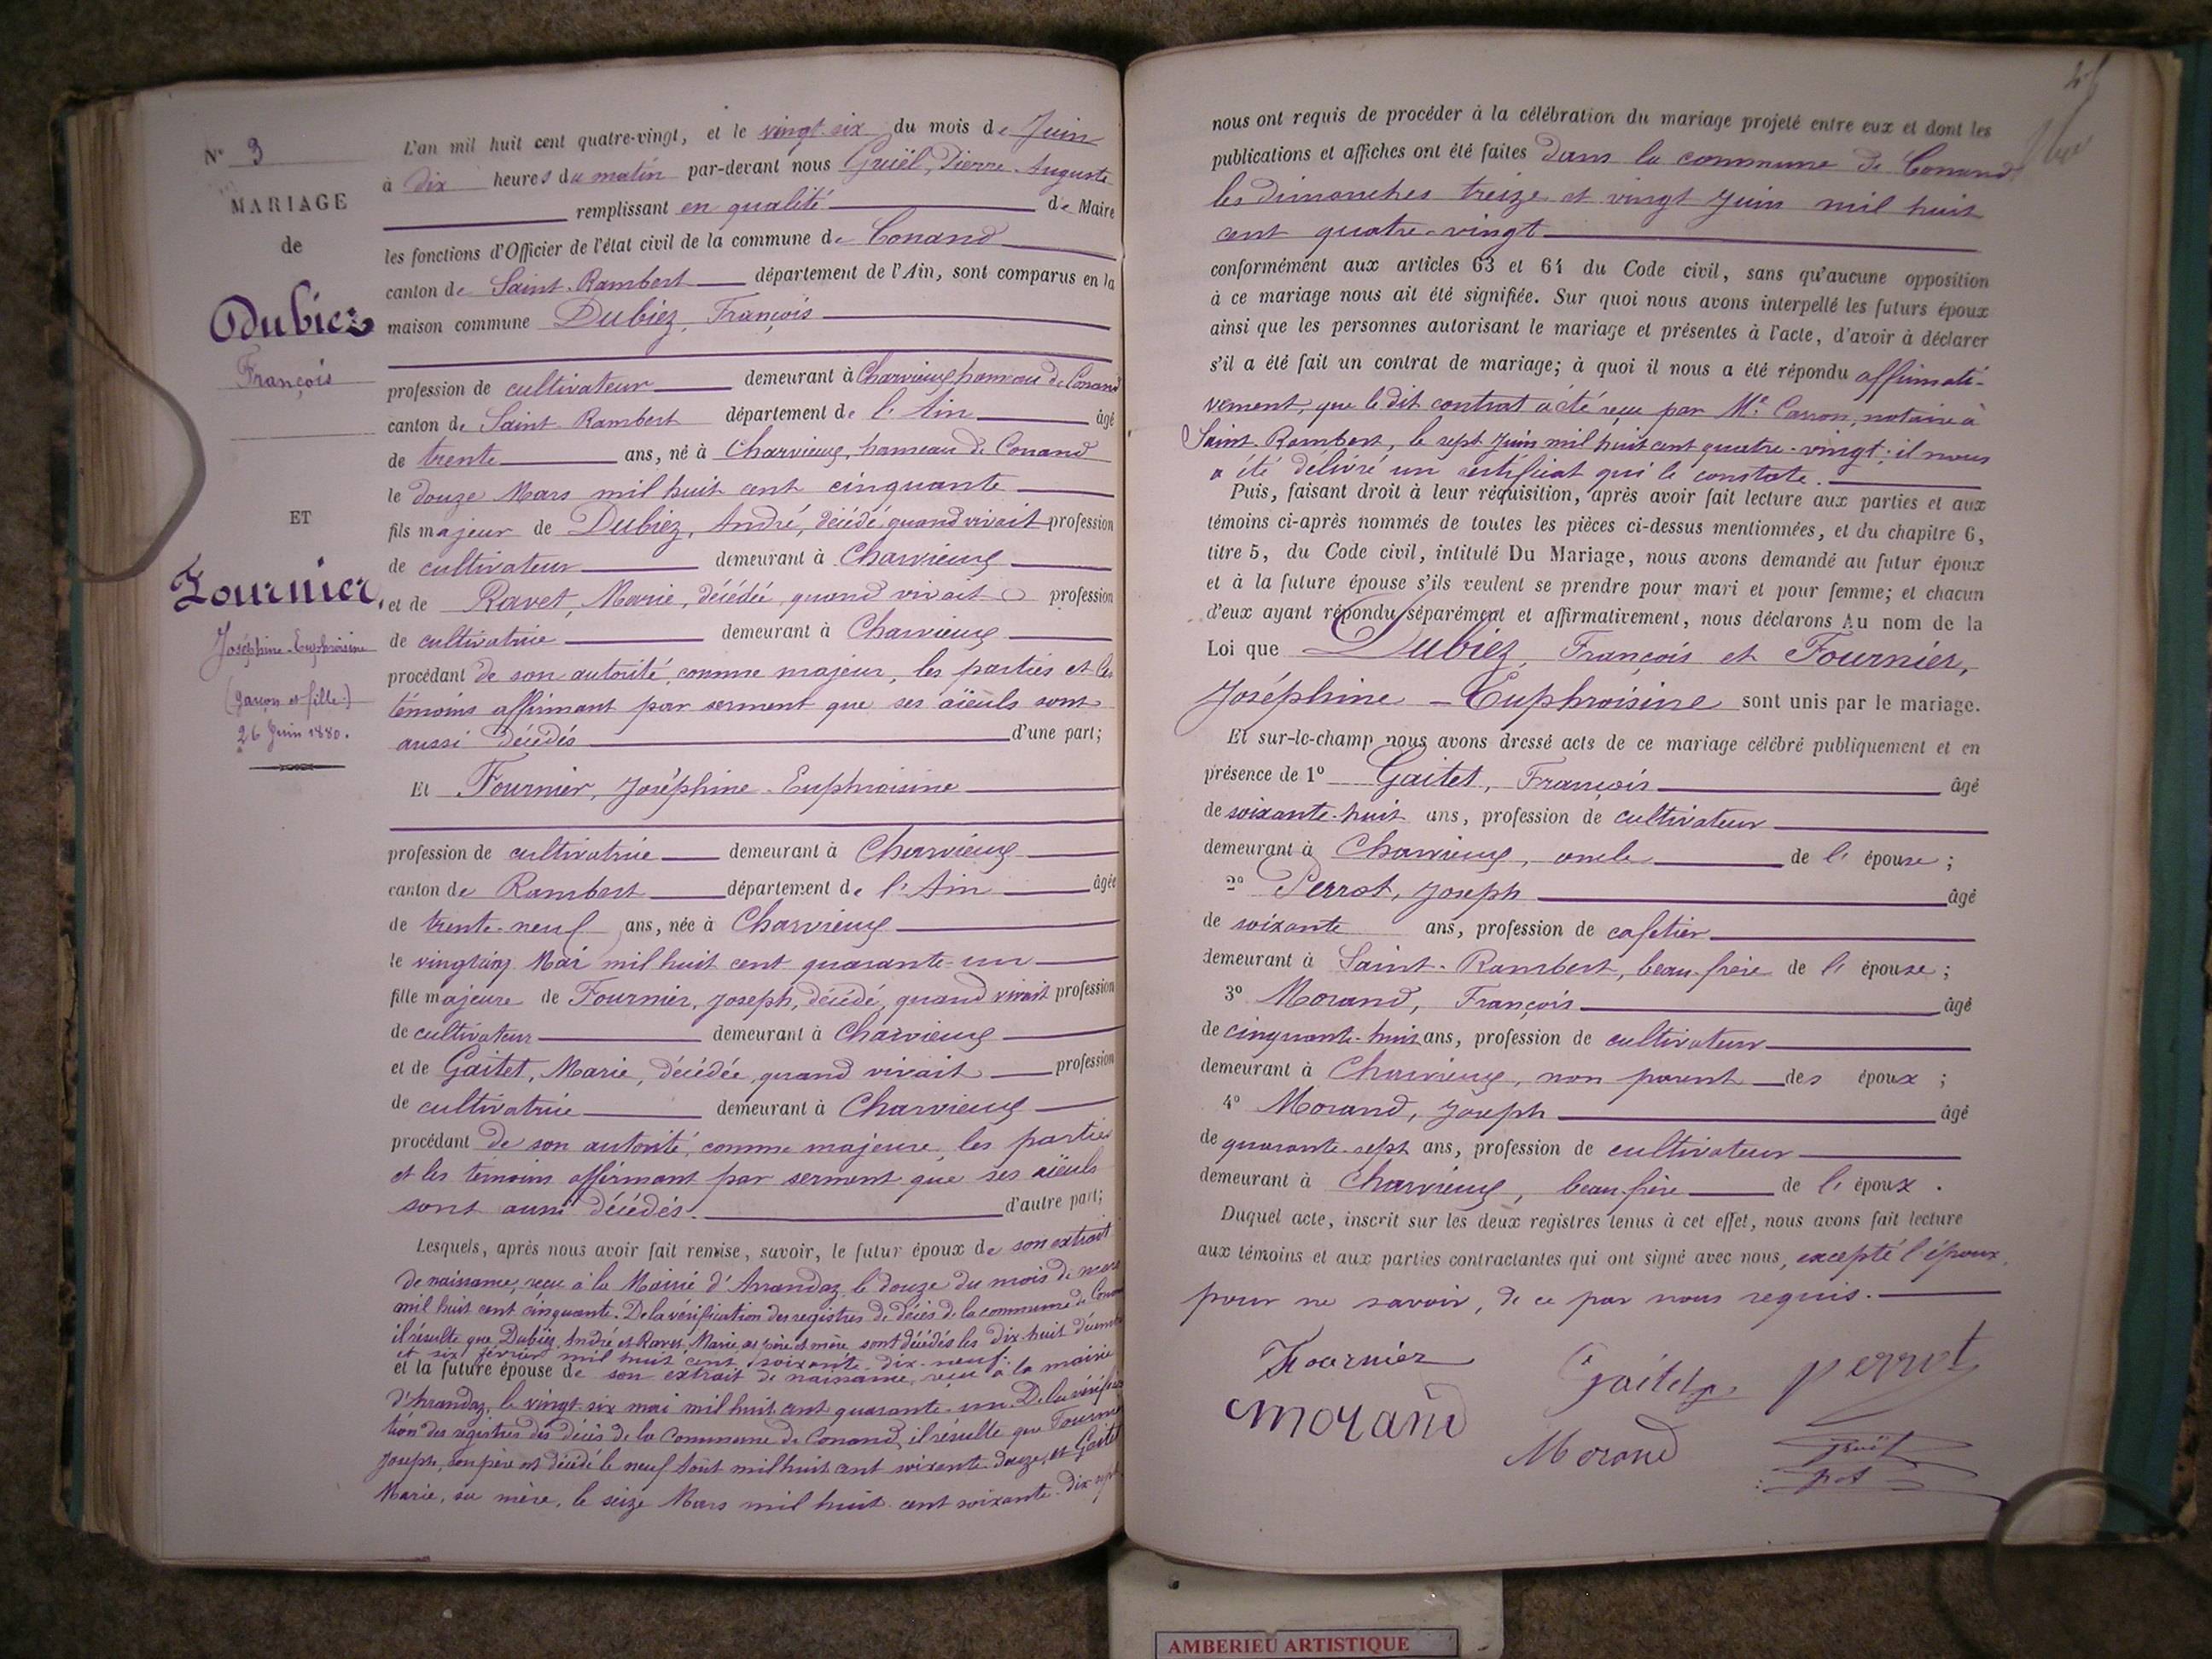 N° 3
MARIAGE
de
Dubiez
François
ET
Fournier,
Joséphine-Euphroisine
(garçon et fille)
26 Juin 1880.
L'an mil huit cent quatre-vingt, et le vingt-six du mois de Juin
à dix heures du matin par-devant nous Gruël, Pierre-Auguste
remplissant en qualité de Maire
les fonctions d'Officier de l'état civil de la commune de Conand
canton de Saint-Rambert département de l'Ain, sont comparus en la
maison commune Dubiez, François
profession de cultivateur demeurant à Charvieux hameau de Conand
canton de Saint-Rambert département de l'Ain âgé
de trente ans, né à Charvieux, hameau de Conand
le douze Mars mil huit cent cinquante
fils majeur de Dubiez, André, décédé, quand vivait profession
de cultivateur demeurant à Charvieux
et de Ravet, Marie, décédée, quand vivait profession
de cultivatrice demeurant à Charvieux
procédant de son autorité, comme majeur, les parties et les
témoins affirmant par serment que ses aïeuls sont
aussi décédés d'une part;
Et Fournier, Joséphine-Euphroisine
profession de cultivatrice demeurant à Charvieux
canton de Rambert département de l'Ain âgée
de trente-neuf ans, née à Charvieux
le vingt cinq Mai mil huit cent quarante-un
fille majeure de Fournier, Joseph, décédé, quand vivait profession
de cultivateur demeurant à Charvieux
et de Gaitet, Marie, décédée, quand vivait profession
de cultivatrice demeurant à Charvieux
procédant de son autorité, comme majeure, les parties
et les témoins affirmant par serment que ses aïeuls
sont aussi décédés. d'autre part;
Lesquels, après nous avoir fait remise, savoir, le futur époux de son extrait
de naissance, reçu à la Mairie d'Arrandaz le douze du mois de mars
mil huit cent cinquante. De la vérification des registres de décès de la commune de Conand
il résulte que Dubiez, André et Ravet, Marie, ses père et mère sont décédés les dix-huit décembre
et six février mil huit cent soixante-dix-neuf.
et la future épouse de son extrait de naissance, reçu à la mairie
d'Arrandaz, le vingt-six mai mil huit cent quarante-un. De la vérifica
tion des registres des décès de la Commune de Conand, il résulte que Fournier
Joseph, son père est décédé le neuf Août mil huit cent soixante-douze, et Gaitet
Marie, sa mère, le seize Mars mil huit cent soixante-dix-sept
nous ont requis de procéder à la célébration du mariage projeté entre eux et dont les
publications et affiches ont été faites dans la commune de Conand
les dimanches treize et vingt Juin mil huit
cent quatre-vingt
conformément aux articles 63 et 64 du Code civil, sans qu'aucune opposition
à ce mariage nous ait été signifiée. Sur quoi nous avons interpellé les futurs époux
ainsi que les personnes autorisant le mariage et présentes à l'acte, d'avoir à déclarer
s'il a été fait un contrat de mariage; à quoi il nous a été répondu affirmati-
vement, que le dit contrat a été reçu par Me. Carron, notaire à
Saint-Rambert, le sept Juin mil huit cent quatre-vingt; il nous
a été délivré un certificat qui le constate.
Puis, faisant droit à leur réquisition, après avoir fait lecture aux parties et aux
témoins ci-après nommés de toutes les pièces ci-dessus mentionnées, et du chapitre 6,
titre 5, du Code civil, intitulé Du Mariage, nous avons demandé au futur époux
et à la future épouse s'ils veulent se prendre pour mari et pour femme; et chacun
d'eux ayant répondu séparément et affirmativement, nous déclarons Au nom de la
Loi que Dubiez, François et Fournier,
Joséphine-Euphroisine sont unis par le mariage.
Et sur-le-champ nous avons dressé acts de ce mariage célébré publiquement et en
présence de 1° Gaitet, François âgé
de soixante-huit ans, profession de cultivateur
demeurant à Charvieux, oncle de l'épouse;
2° Perrot, Joseph âgé
de soixante ans, profession de cafetier
demeurant à Saint-Rambert, beau-frère de l'épouse;
3° Morand, François âgé
de cinquante-huit ans, profession de cultivateur
demeurant à Charvieux, non parent des époux;
4° Morand, Joseph âgé
de quarante-sept ans, profession de cultivateur
demeurant à Charvieux, beau-frère de l'époux.
Duquel acte, inscrit sur les deux registres tenus à cet effet, nous avons fait lecture
aux témoins et aux parties contractantes qui ont signé avec nous, excepté l'époux,
pour ne savoir, de ce par nous requis.
Fournier Gaitet perrot
morand Morand Gruël
AMBERIEU ARTISTIQUE